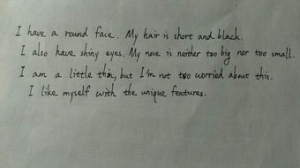 I have a round face. My hair is short and black.
I also have shiny eyes. My nose is neither too big nor too small.
I am a little thin, but I'm not too worried about this.
I like myself with the unique features.